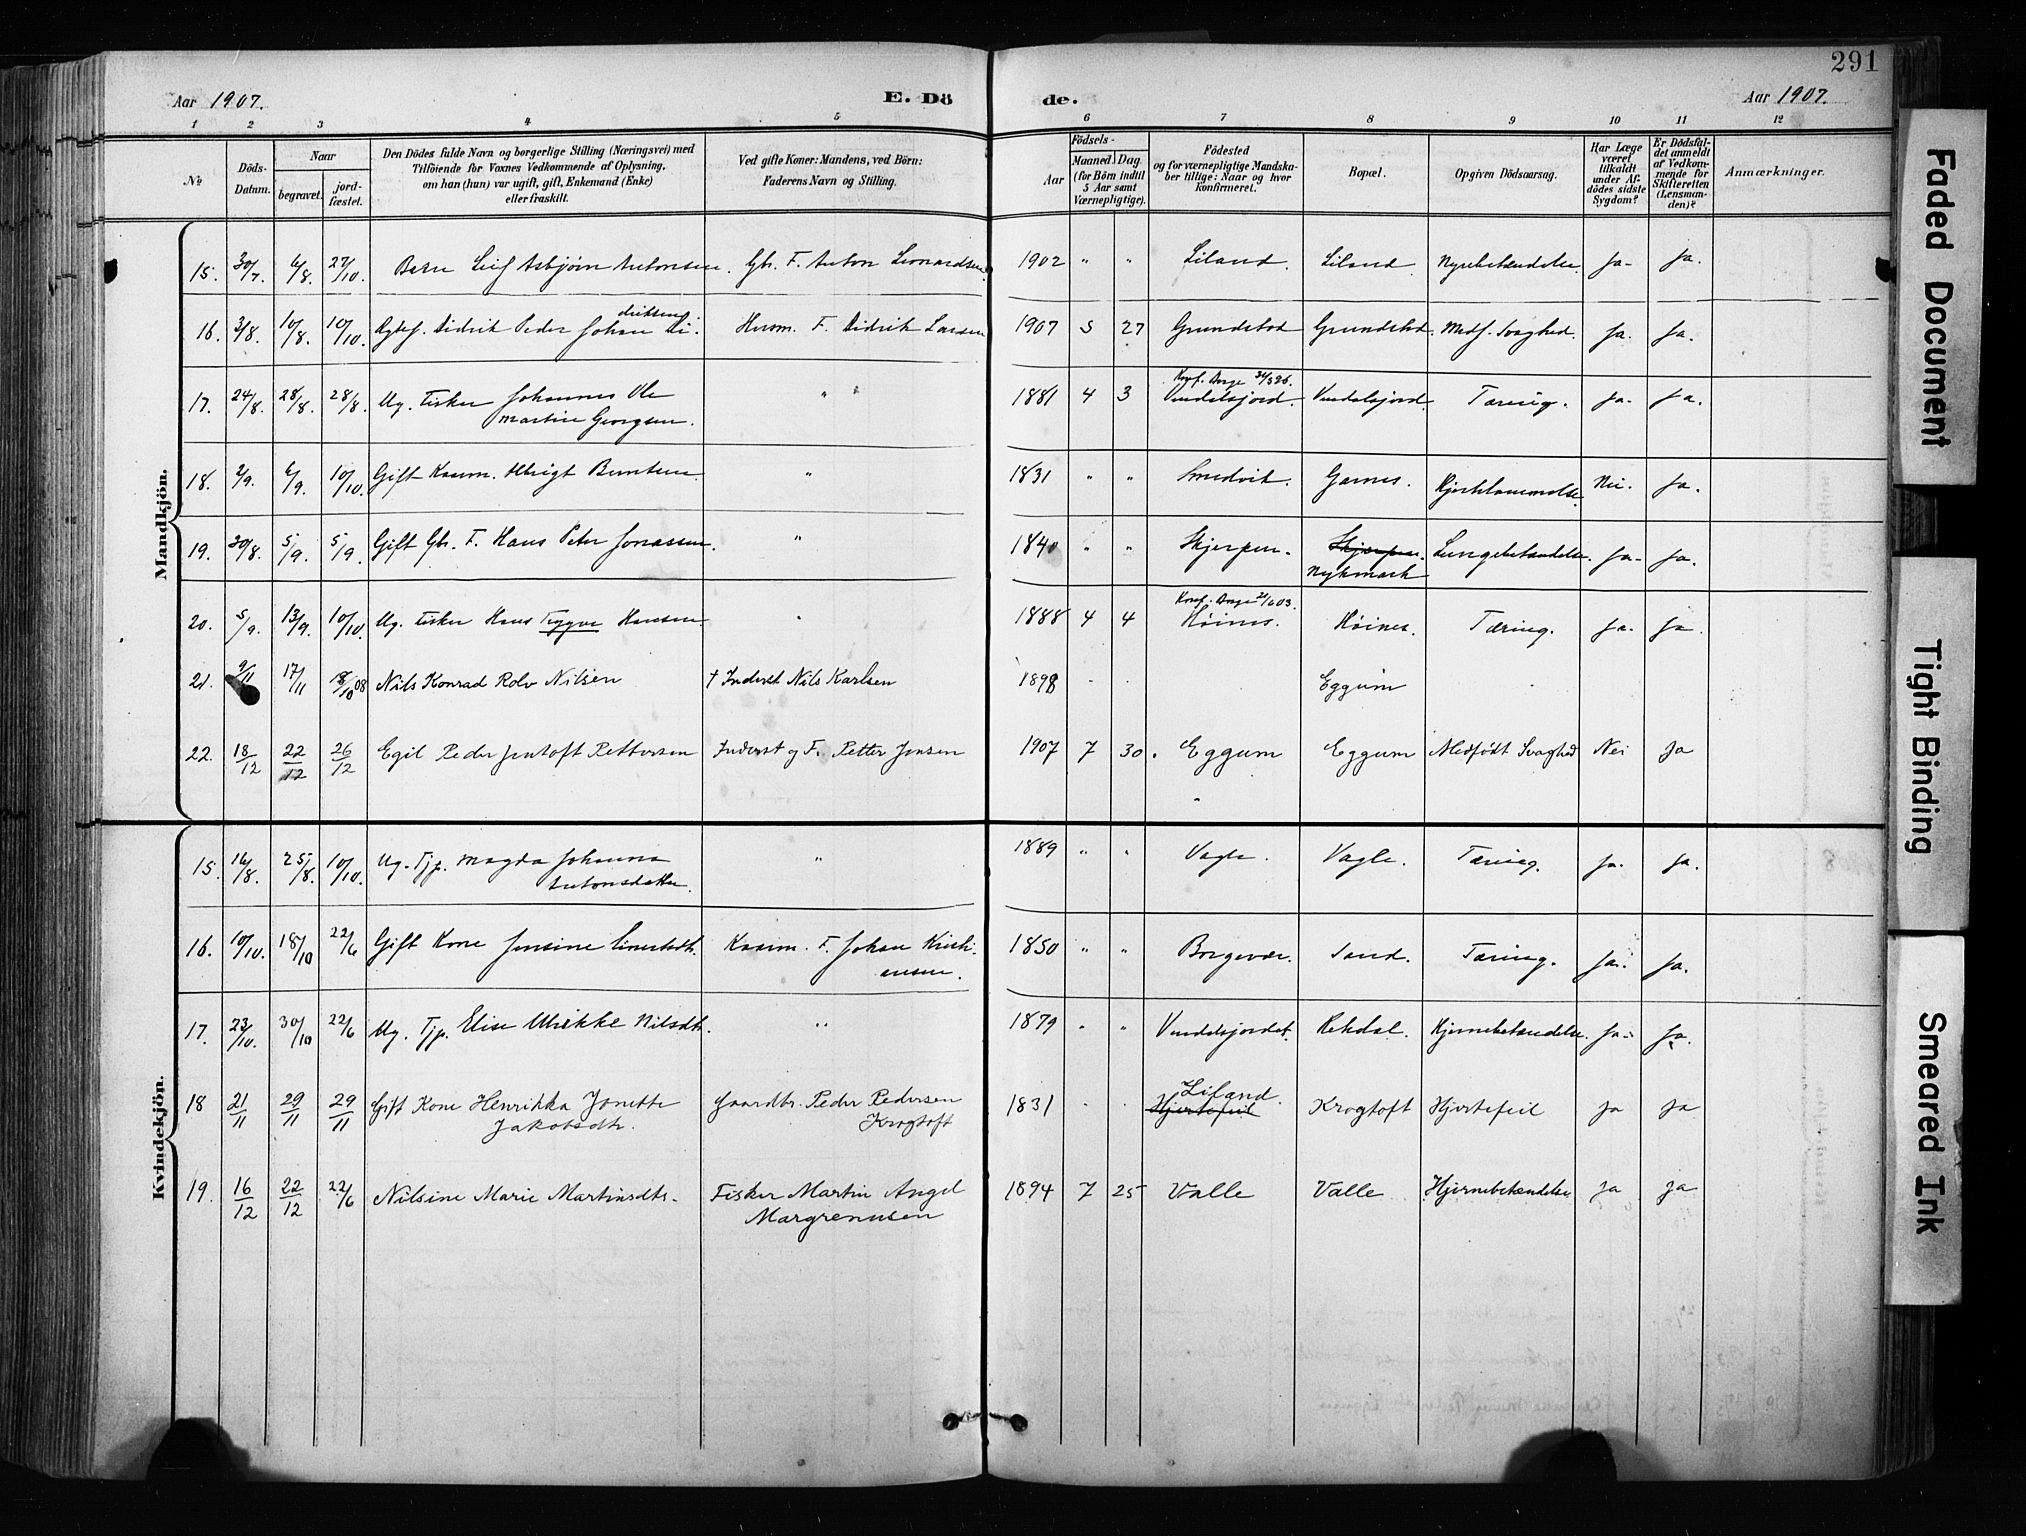 291
Aar 1907. E. Dö de. Aar 1907.
1 2 3 4 5 6 7 8 9 10 11 12
№
Döds-Datum.
Naar
begravet.
jord-fæstet.
Den Dödes fulde Navn og borgerlige Stilling (Næringsvei) med
Tilföiende for Voxnes Vedkommende af Oplysning,
om han (hun) var ugift, gift, Enkemand (Enke)
eller fraskilt.
Ved gifte Koner: Mandens, ved Börn:
Faderens Navn og Stilling.
Födsels-
Aar
Maaned. Dag.
(for Börn indtil
5 Aar samt
Værnepligtige).
Födested
og for værnepligtige Mandska-
ber tillige: Naar og hvor
Konfirmeret.
Bopæl.
Opgiven Dödsaarsag.
Har Læge
været
tilkaldt
under Af-
dödes sidste
Sygdom?
Er Dödsfal-
det anmeldt
af Vedkom-
mende for
Skifteretten
(Lensman-
den)?
Anmærkninger.
Mandkjön.
15. 30/7. 6/8. 27/10. Barn Leif Asbjørn Antonsen. Gb. F. Anton Leonardsen. 1902 " " Liland. Liland. Nyrebetændelse. Ja. Ja.
16. 3/8. 10/8. 10/10. Didrik Peder Johan Di-
driksen. Husm. F. Didrik Larsen 1907 5 27 Grundstad Grundstad. Medf. Svaghed. Ja. Ja.
17. 24/8. 28/8. 28/8. Ug. Fisker Johannes Ole
Martin Georgsen. " " 1881 4 3 Konf. Vendalsjord. Vendalsjord. Tæring. Ja. Ja.
18. 2/9. 6/9. 10/10. Gift Kaarm. Bentsen. " 1831 " " Smedvik. Garnes. Nei. Ja.
19. 30/8. 5/9. 5/9. Gift Gb. F. Hans Peter Jonassen. " 1840 " " Skjerpen. Skjerpen.
Nykmark Lungebetændelse. Ja. Ja.
20. 5/9. 13/9. 10/10. Ug. Fisker Hans Trygve Hansen. " 1888 4 4 Konf. Høines. Høines. Tæring. Ja. Ja.
21. 9/11 17/11 18/10 08 Nils Konrad Rolv Nilsen † Inderst Nils Karlsen 1898 Eggum
22. 18/12 22/12 26/12 Egil Peder Jentoft Pettersen Inderst og F. Petter Jensen 1907 7 30. Eggum Eggum Medfødt Svaghed Nei Ja
"
Kvindekjön.
15. 16/8. 25/8. 10/10. Ug. Tjp. Magda Johanna
Antonsdatter. " 1889 " " Vagle. Vagle. Tæring. Ja. Ja.
16. 10/10. 18/10 22/6 Gift Kone Jensine Kaarm. F. Johan Kristi-
ansen. 1850 " " Borgevær. Sand. Tæring. Ja. Ja.
17. 23/10. 30/10 22/6 Ug. Tjp. Elise Ulrikke Nilsdtr. " 1879 " " Vendalsjordet. Rekdal. Hjernebetændelse. Ja. Ja.
18 21/11 29/11 29/11 Gift Kone Henrikka Janette
Jakobsdtr. Gaardbr. Peder Pedersen
Krogtoft 1831 Liland.
Hjertefeil Krogtoft Hjertefeil Ja Ja
19. 16/12 22/12 22/6 Nilsine Marie Martinsdtr. Fisker Martin Angel
Margrenusen 1894 7 25 Valle Valle Hjernebetændelse Ja Ja
Faded Document
Tight Binding
Smeared Ink